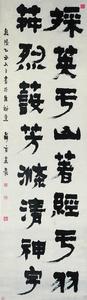 採英于山著經于羽
荈烈蔎芳滌清神宇